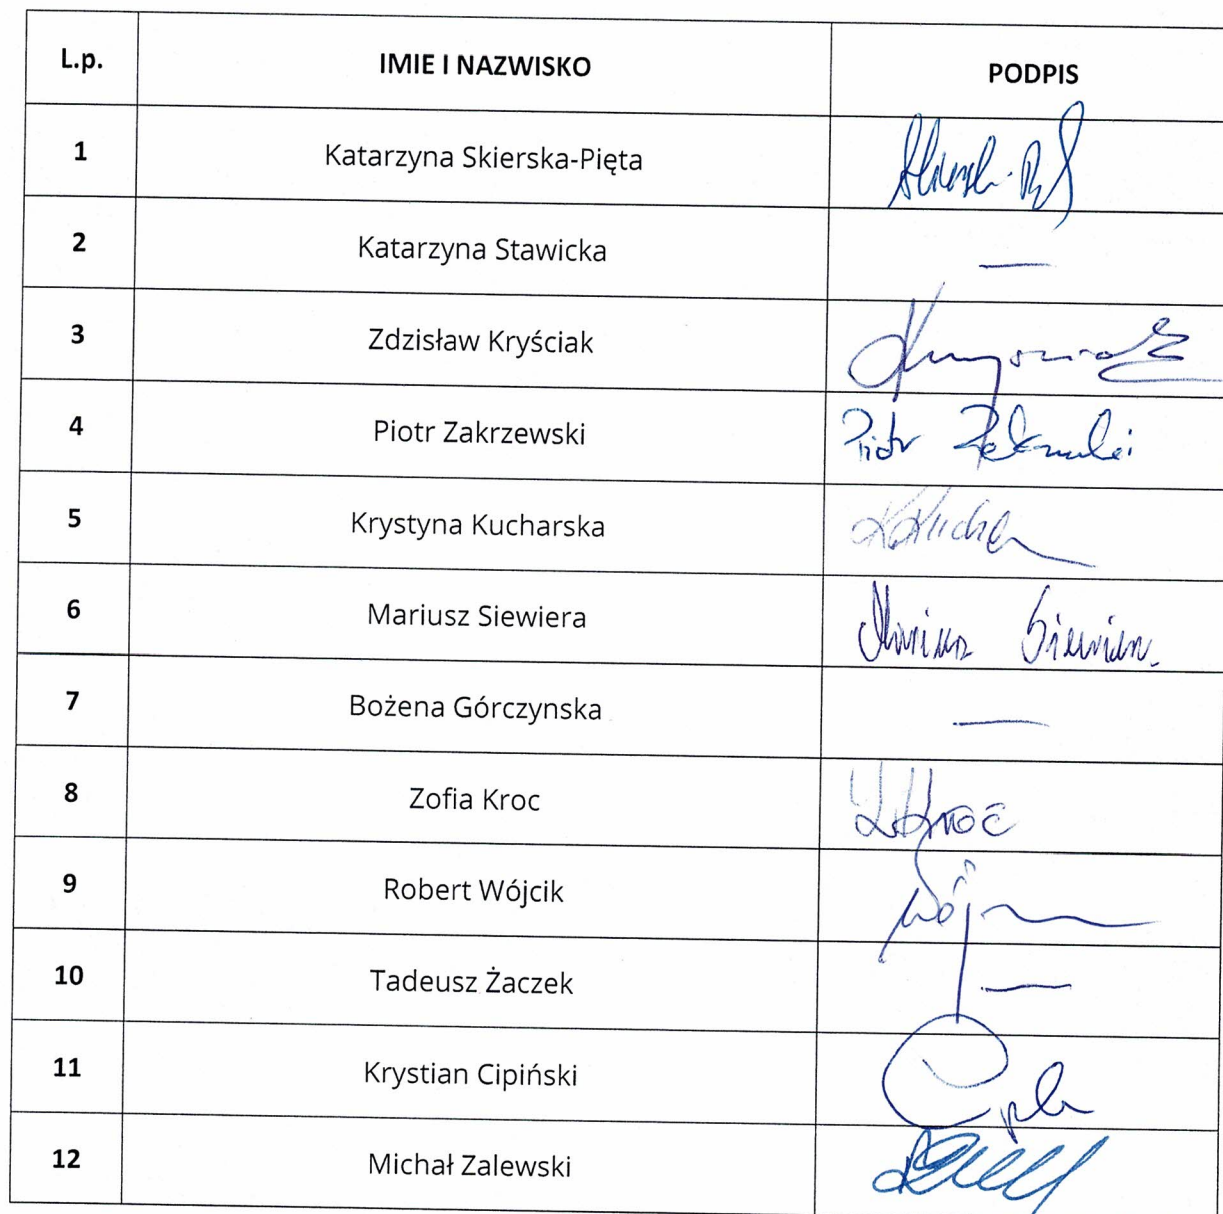 L.p. IMIE I NAZWISKO PODPIS
1 Katarzyna Skierska-Pięta
2 Katarzyna Stawicka —
3 Zdzisław Kryściak
4 Piotr Zakrzewski Piotr
5 Krystyna Kucharska
6 Mariusz Siewiera Mariusz
7 Bożena Górczynska —
8 Zofia Kroc
9 Robert Wójcik
10 Tadeusz Żaczek —
11 Krystian Cipiński
12 Michał Zalewski